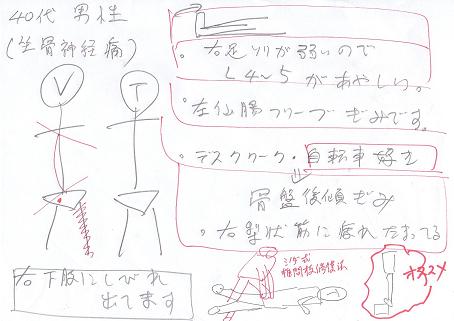 40代 男性
(坐骨神経痛)
V T
右足ソリが弱いので
L4~5があやしい。
左仙腸フリーブぎみです。
デスクワーク・自転車好き
骨盤後傾ぎみ
右梨状筋に疲れたまってる
右下肢にしびれ
出てます
椎間板修復法
オススメ